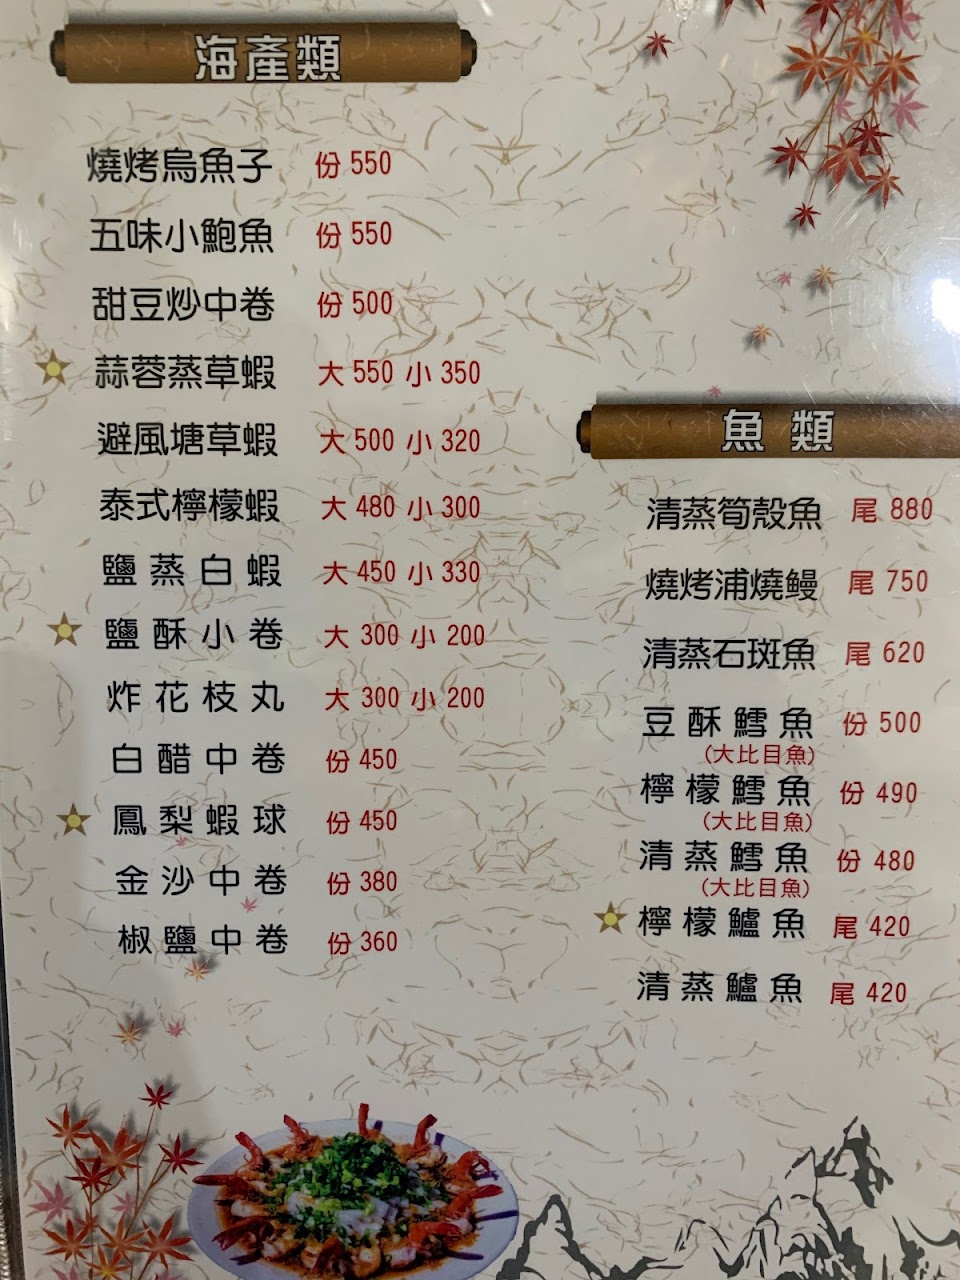 海產類
燒烤烏魚子 份 550
五味小鮑魚 份 550
甜豆炒中卷 份 500
蒜蓉蒸草蝦 大 550 小 350
避風塘草蝦 大 500 小 320
泰式檸檬蝦 大 480 小 300
鹽蒸白蝦 大 450 小 330
鹽酥小卷 大 300 小 200
炸花枝丸 大 300 小 200
白醋中卷 份 450
鳳梨蝦球 份 450
金沙中卷 份 380
椒鹽中卷 份 360
魚類
清蒸筍殼魚 尾 880
燒烤浦燒鰻 尾 750
清蒸石斑魚 尾 620
豆酥鱈魚 份 500
(大比目魚)
檸檬鱈魚 份 490
(大比目魚)
清蒸鱈魚 份 480
(大比目魚)
檸檬鱸魚 尾 420
清蒸鱸魚 尾 420